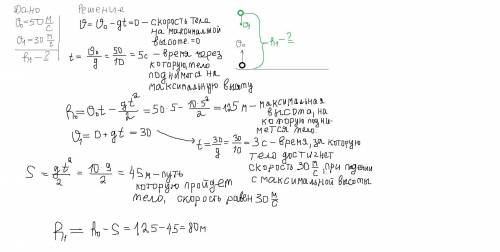 Дано
υ₀=50 м/с
υ₁=30 м/с
h₁-?
Решение
υ=υ₀-gt=0 - скорость тела
на максимальной
высоте =0
t=υ₀/g=50/10=5с - время через
которую тело
поднимется на
максимальную высоту
υ₁
h₁-?
υ₀
h₀=υ₀t-gt²/2=50·5-10·5²/2=125м - максимальная
высота, на
которую подни-
мется тело
υ₁=0+gt=30
t=30/g=30/10=3с - время, за которую
тело достигнет
скорость 30 м/с, при падении
с максимальной высоты
S=gt²/2=10·9/2=45м - путь
которую пройдет
тело, скорость равен 30 м/с
h₁=h₀-S=125-45=80м